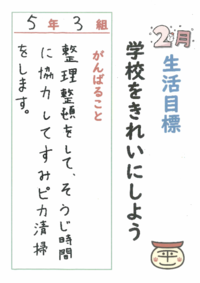 2月
生活目標
学校をきれいにしよう
5年3組
がんばること
整理整頓をして、そうじ時間
に協力してすみピカ清掃
をします。